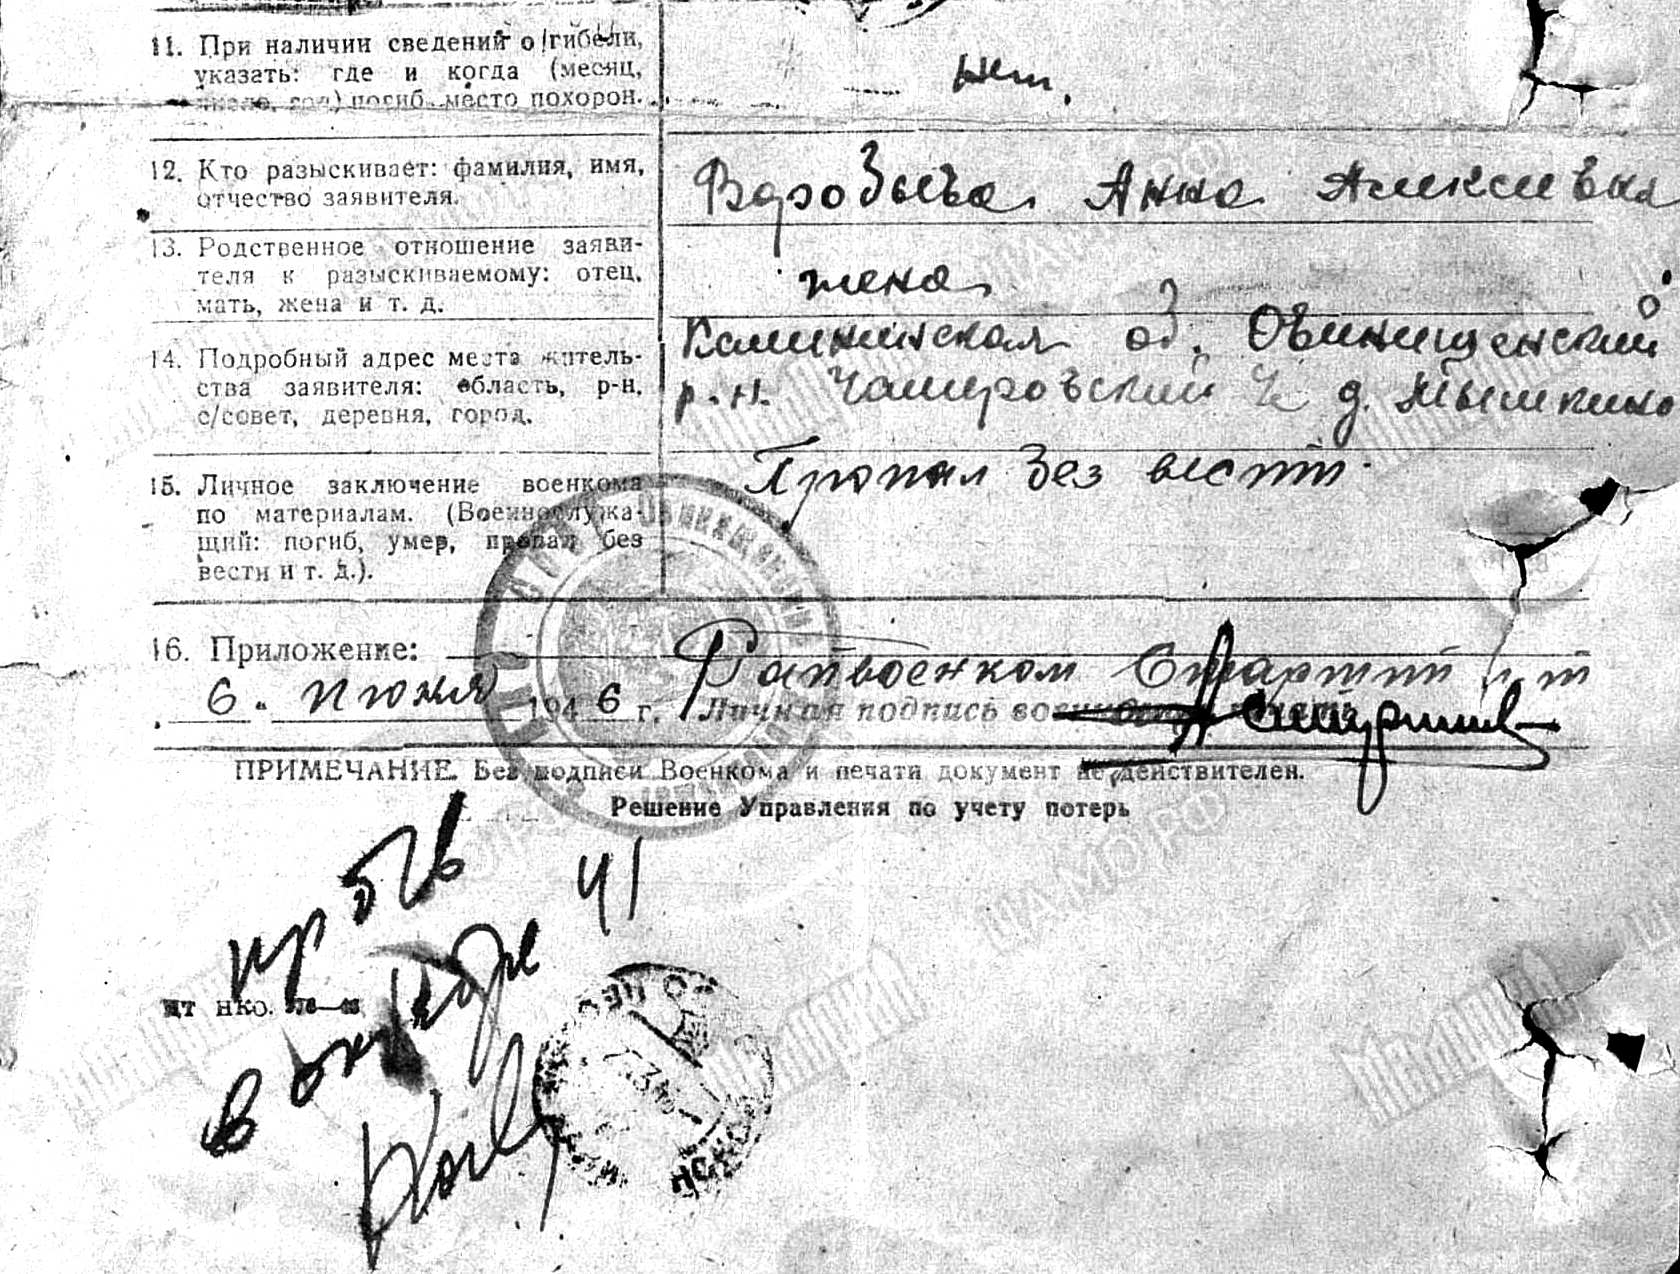 11. При наличии сведений о гибели, указать: где и когда (месяц, число, год) погиб, место похорон.
нет.
12. Кто разыскивает: фамилия, имя, отчество заявителя.
Воробьева Анна Алексевна
13. Родственное отношение заяви-
теля к разыскиваемому: отец,
мать, жена и т. д.
жена
14. Подробный адрес места житель-
ства заявителя: область, р-н,
с/совет, деревня, город.
Калининская об. Овинищенский
р.н. Чамеровский д. Мышкино
15. Личное заключение военкома
по материалам. (Военнослужа-
щий: погиб, умер, пропал без
вести и т. д.).
Пропал без вести.
16. Приложение:
6. июня 1946 г.
Райвоенком Старший л-т
Личная подпись
ПРИМЕЧАНИЕ. Без подписи Военкома и печати документ не действителен.
Решение Управления по учету потерь
пр б/в
в октябре 41
нко.